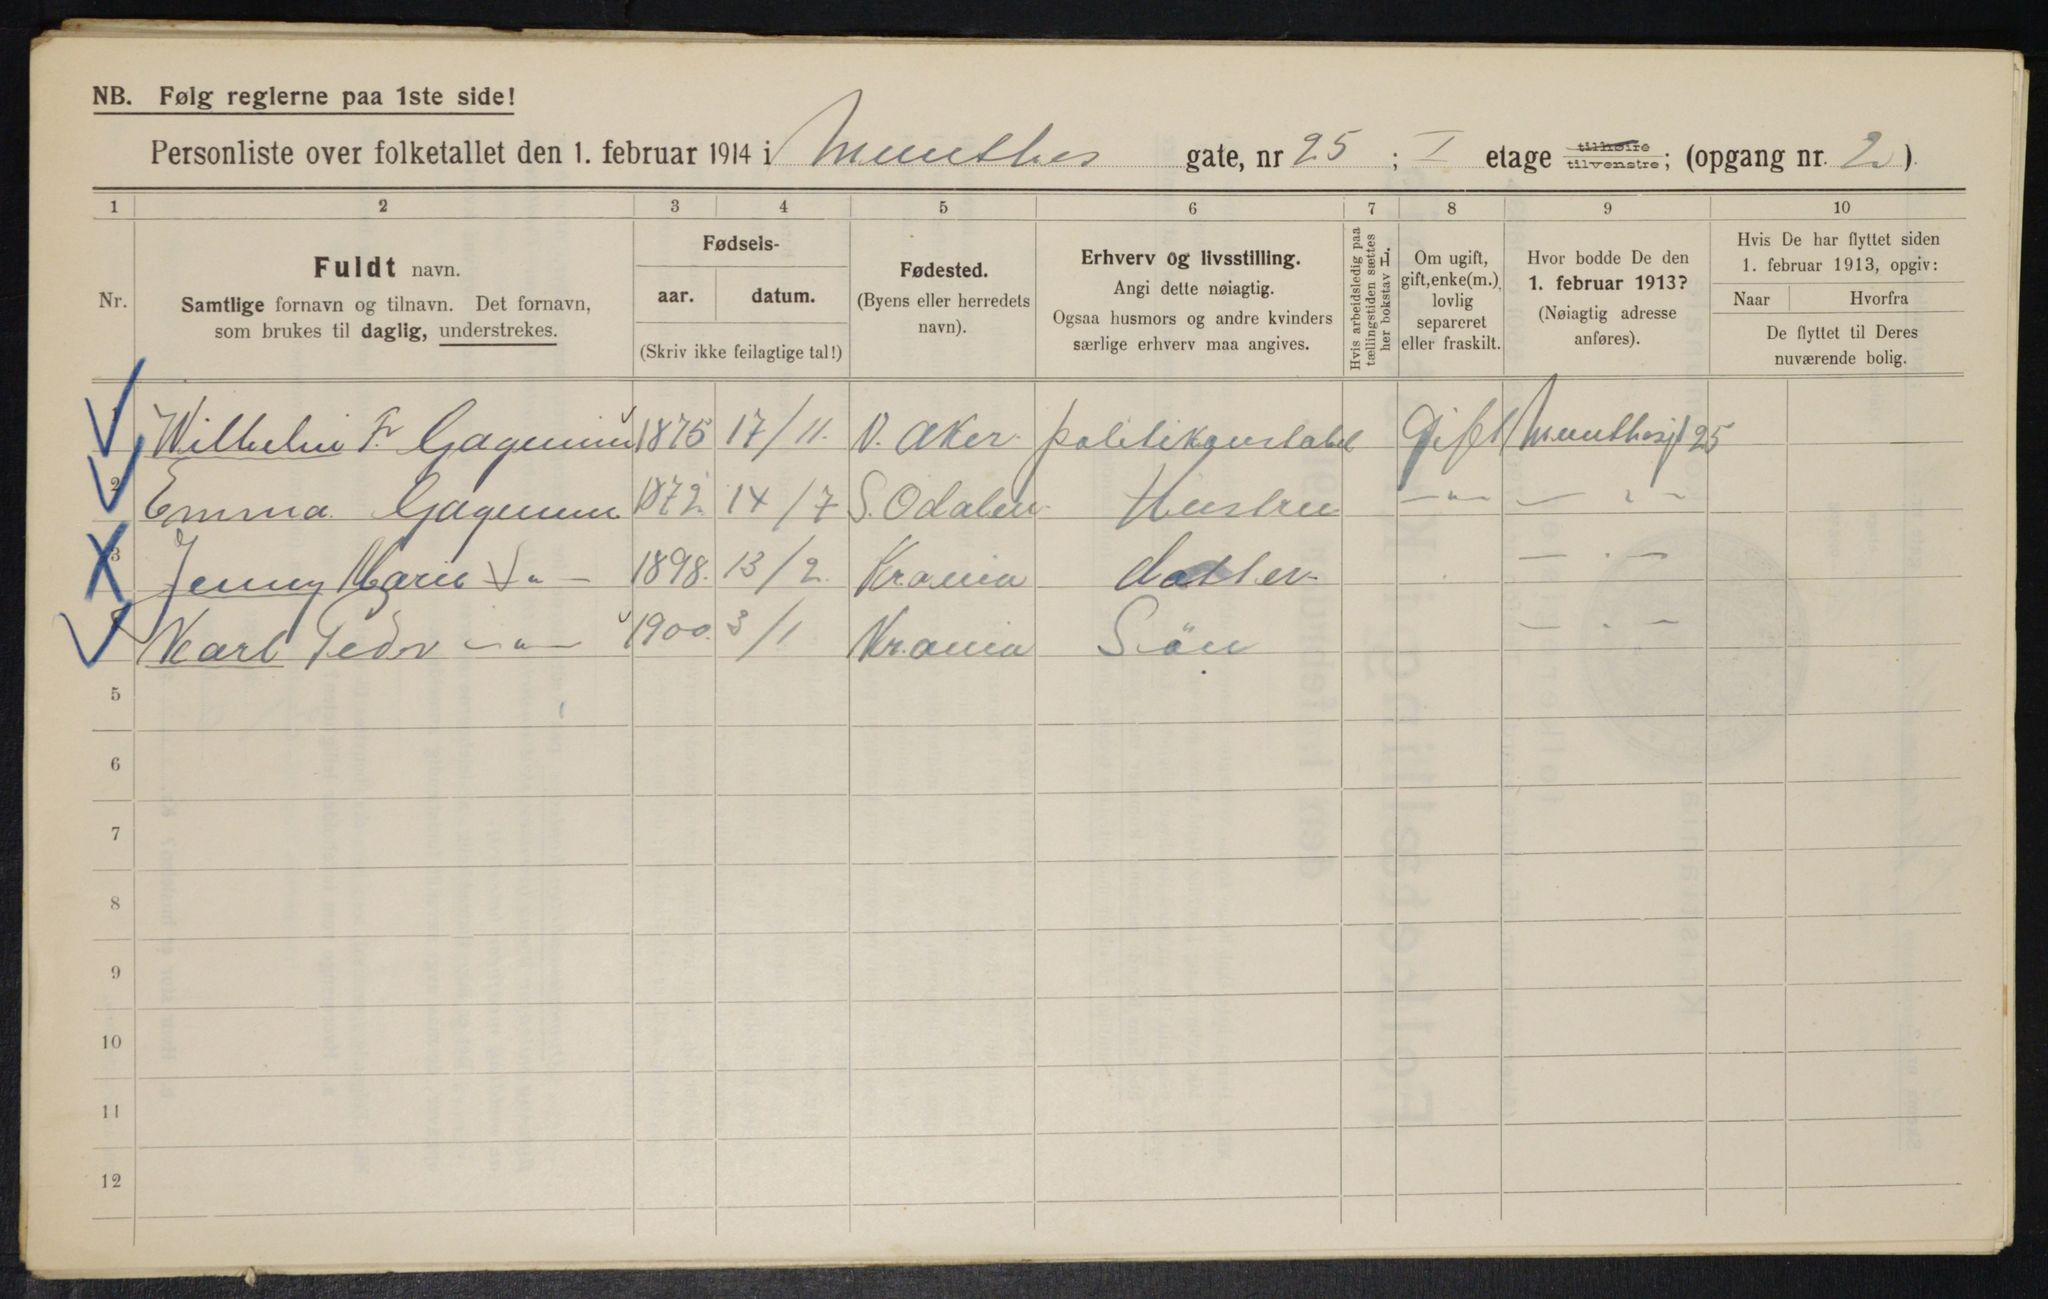 NB. Følg reglerne paa 1ste side!
Personliste over folketallet den 1. februar 1914 i Munthes gate, nr 25 ; I etage tilhøire tilvenstre; (opgang nr. 2)
1 2 3 4 5 6 7 8 9 10
Nr.
Fuldt navn.
Samtlige fornavn og tilnavn. Det fornavn,
som brukes til daglig, understrekes.
Fødsels-
aar. datum.
(Skriv ikke feilagtige tal!)
Fødested.
(Byens eller herredets
navn).
Erhverv og livsstilling.
Angi dette nøiagtig.
Ogsaa husmors og andre kvinders
særlige erhverv maa angives.
Hvis arbeidsledig paa
tællingstiden sættes
her bokstav L.
Om ugift,
gift, enke(m.),
lovlig
separeret
eller fraskilt.
Hvor bodde De den
1. februar 1913?
(Nøiagtig adresse
anføres).
Hvis De har flyttet siden
1. februar 1913, opgiv:
Naar Hvorfra
De flyttet til Deres
nuværende bolig.
1 Wilhelm Fr 1875 17/11. V. Aker. politikonstabel Gift Munthesgt 25
2 Emma 1872. 14/7 S. Odalen Hustru —"— — " —
3 Jenny Marie —"— 1898. 13/2. Krania datter — " —
Karl Peder —"— 1900. 3/1 Krania Sön — " —
5
6
7
8
9
10
11
12